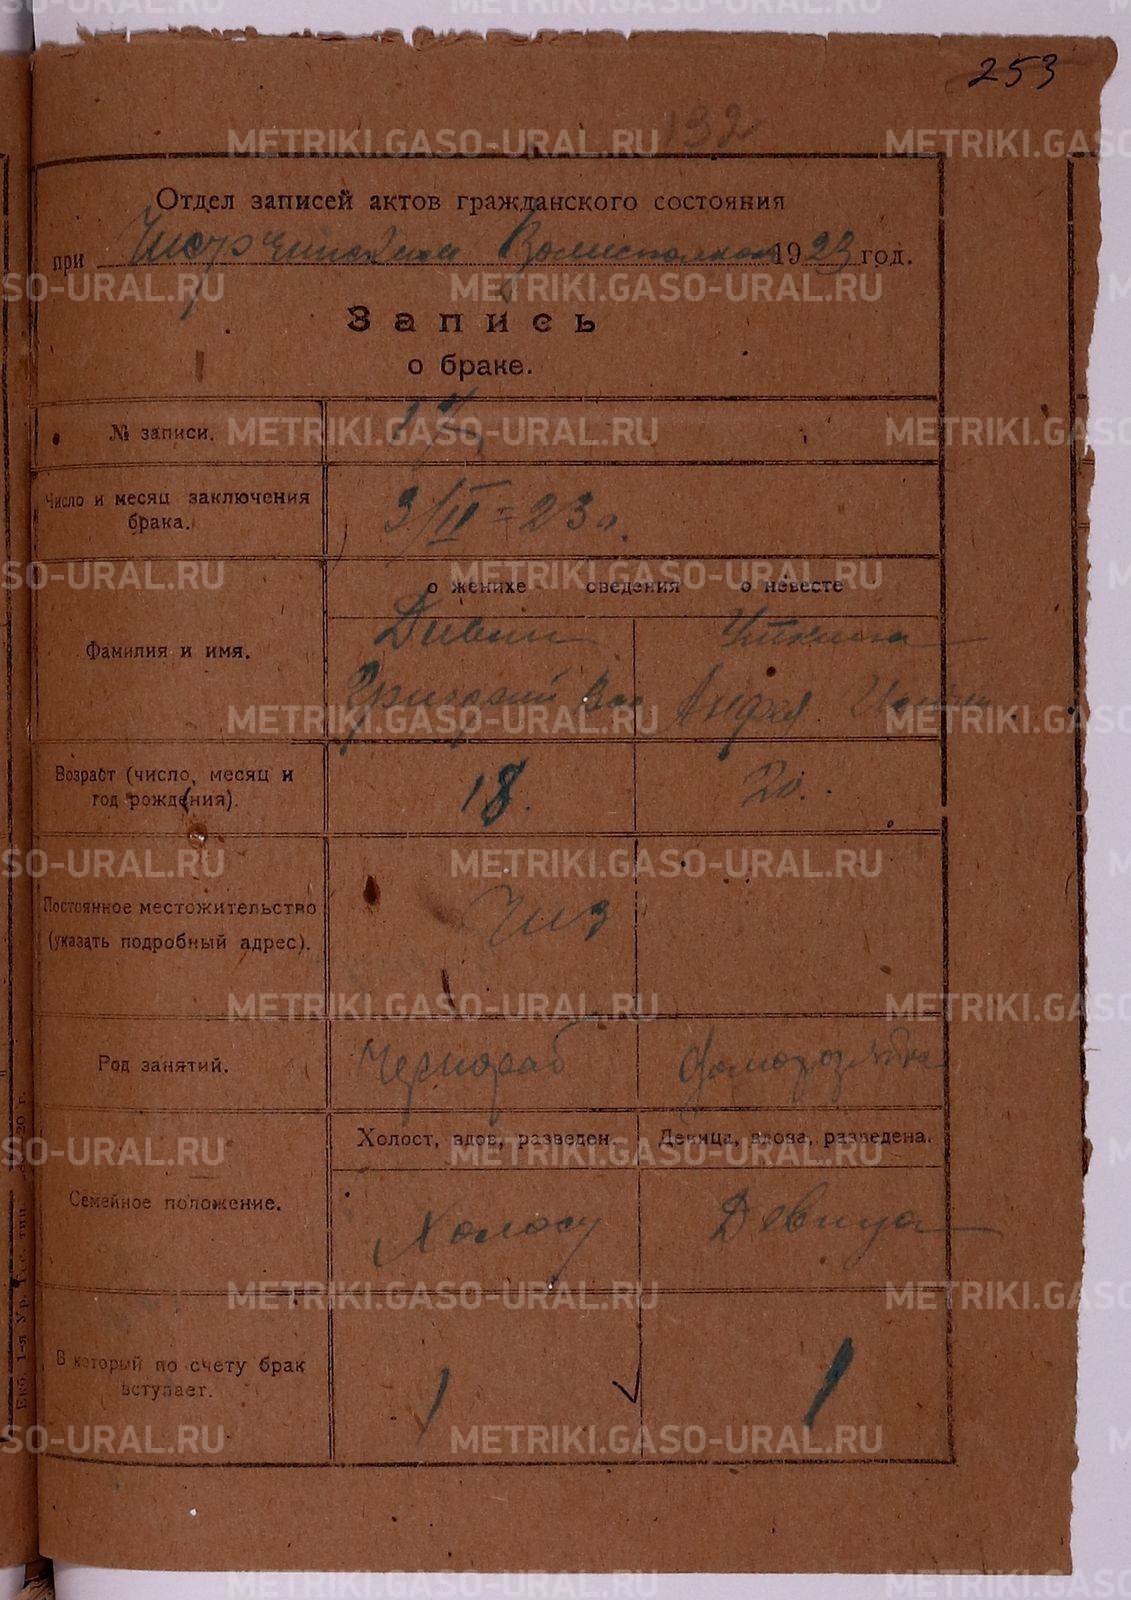 253
132
Отдел записей актов гражданского состояния
при Волисполком 1923 год.
Запись
о браке.
№ записи.
Число и месяц заключения
брака.
3/II=23г.
о женихе сведения о невесте
Фамилия и имя.
Дивин Уткина
Григорий Вас Анфея
Возраст (число, месяц и
год рождения).
18. 20.
Постоянное местожительство
(указать подробный адрес).
Чиз
Род занятий.
Чернораб домохозяйка
Холост, вдов, разведен. Девица, вдова, разведена.
Семейное положение.
Холост Девица
В который по счету брак
вступает.
1 1
Екб. 1-я Ур. Гос. тип.
METRIKI.GASO-URAL.RU